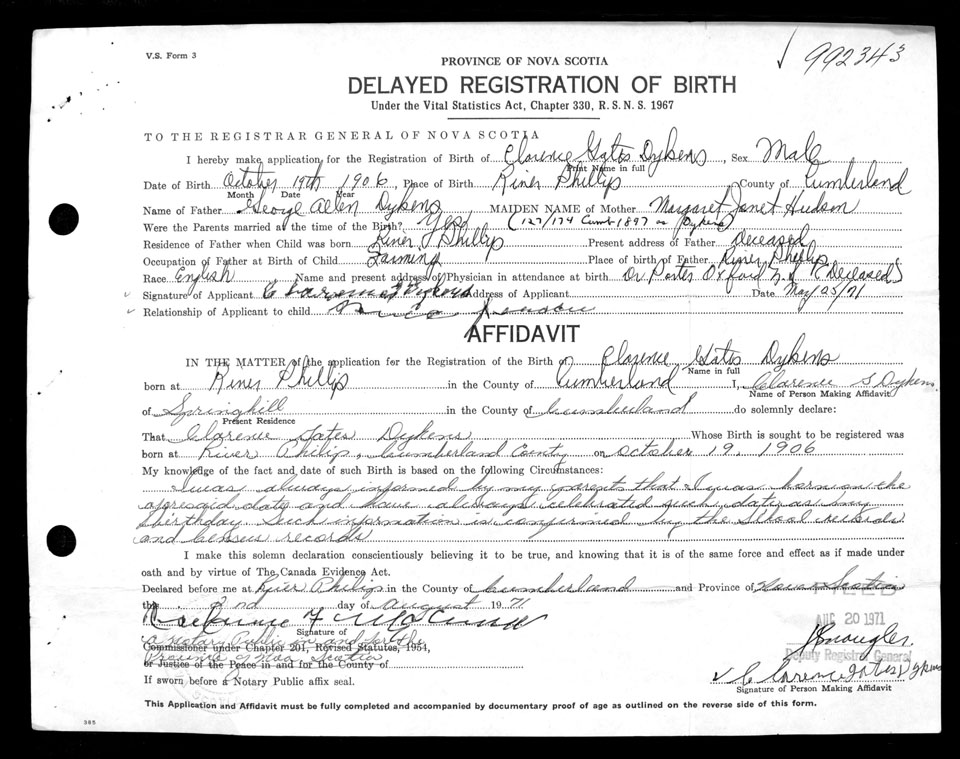 V.S. Form 3
992343
PROVINCE OF NOVA SCOTIA
DELAYED REGISTRATION OF BIRTH
Under the Vital Statistics Act, Chapter 330, R.S.N.S. 1967
TO THE REGISTRAR GENERAL OF NOVA SCOTIA
I hereby make application for the Registration of Birth of Clarence Gates Dykens, Sex Male
Print Name in full
Date of Birth October 19th 1906, Place of Birth River Phillip County of Cumberland
Month Date Year
Name of Father George Allen Dykens MAIDEN NAME of Mother Margaret Janet Hudson
Were the Parents married at the time of the Birth? Yes (127/174 Cumb 1897 as Dykens)
Residence of Father when Child was born River Phillip Present address of Father deceased
Occupation of Father at Birth of Child Farming Place of birth of Father River Phillip
Race English Name and present address of Physician in attendance at birth Dr Porter Oxford N.S (Deceased)
Signature of Applicant Clarence Dykens Address of Applicant Date May 25/71
Relationship of Applicant to child
AFFIDAVIT
IN THE MATTER of the application for the Registration of the Birth of Clarence Gates Dykens
Name in full
born at River Phillip in the County of Cumberland I, Clarence G Dykens
Name of Person Making Affidavit
of Springhill in the County of Cumberland do solemnly declare:
Present Residence
That Clarence Gates Dykens Whose Birth is sought to be registered was
born at River Philip, Cumberland County on October 19, 1906
My knowledge of the fact and date of such Birth is based on the following Circumstances:
I was always informed by my parents that I was born on the
aforesaid date and have always celebrated such date as my
birthday. Such information is confirmed by the School records
and Census records
I make this solemn declaration conscientiously believing it to be true, and knowing that it is of the same force and effect as if made under
oath and by virtue of The Canada Evidence Act.
Declared before me at River Philip in the County of Cumberland and Province of Nova Scotia
this 2nd day of August 1971
AUG 20 1971
Signature of
a Notary Public in and for the
Commissioner under Chapter 201, Revised Statutes, 1954,
Province of Nova Scotia
or Justice of the Peace in and for the County of
Deputy Registrar General
If sworn before a Notary Public affix seal.
Clarence Gates Dykens
Signature of Person Making Affidavit
This Application and Affidavit must be fully completed and accompanied by documentary proof of age as outlined on the reverse side of this form.
385